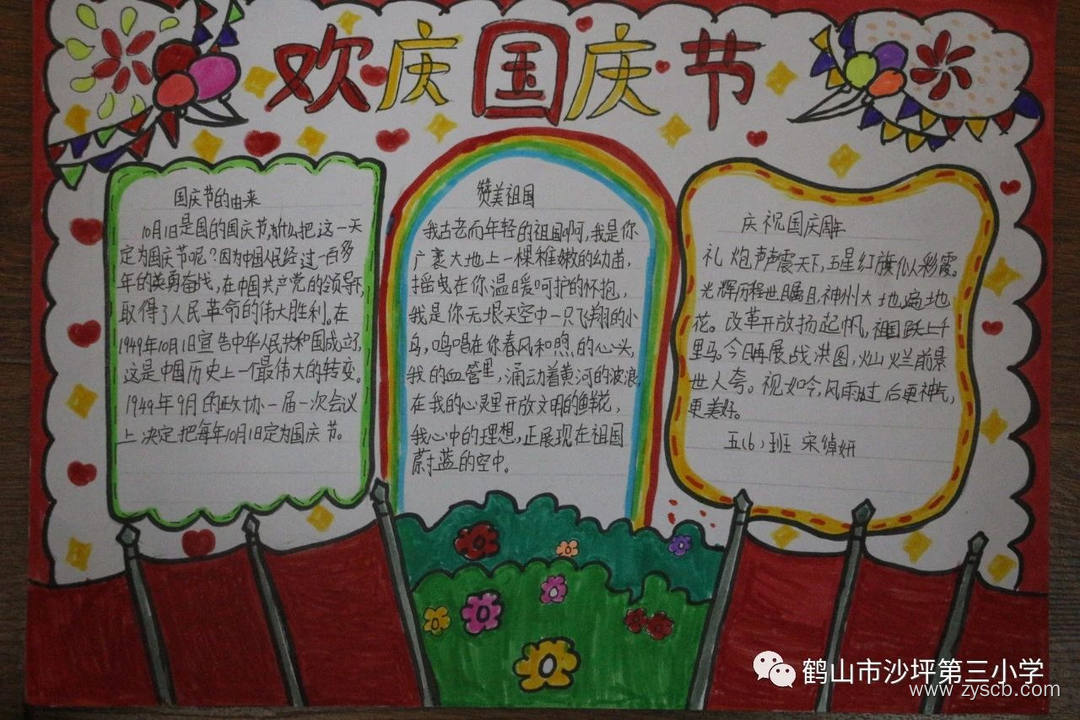 欢庆国庆节
国庆节的由来
10月1日是国的国庆节,为什么把这一天
定为国庆节呢?因为中国人民经过一百多
年的英勇奋战,在中国共产党的领导下,
取得了人民革命的伟大胜利。在
1949年10月1日宣告中华人民共和国成立了,
这是中国历史上一个最伟大的转变。
1949年9月的政协一届一次会议
上决定把每年10月1日定为国庆节。
赞美祖国
我古老而年轻的祖国啊,我是你
广袤大地上一棵稚嫩的幼苗,
摇曳在你温暖呵护的怀抱,
我是你无垠天空中一只飞翔的小
鸟,鸣唱在你春风和煦的心头,
我的血管里,涌动着黄河的波浪,
在我的心灵里开放文明的鲜花,
我心中的理想,正展现在祖国
蔚蓝的空中。
庆祝国庆周年
礼炮声声震天下,五星红旗似彩霞。
光辉历程世瞩目,神州大地遍地
花。改革开放扬起帆,祖国跃上千
里马。今日再展战洪图,灿烂前景
世人夸。视如今,风雨过后更神气,
更美好。
五(6)班 宋绰妍
鹤山市沙坪第三小学
www.zyscb.com